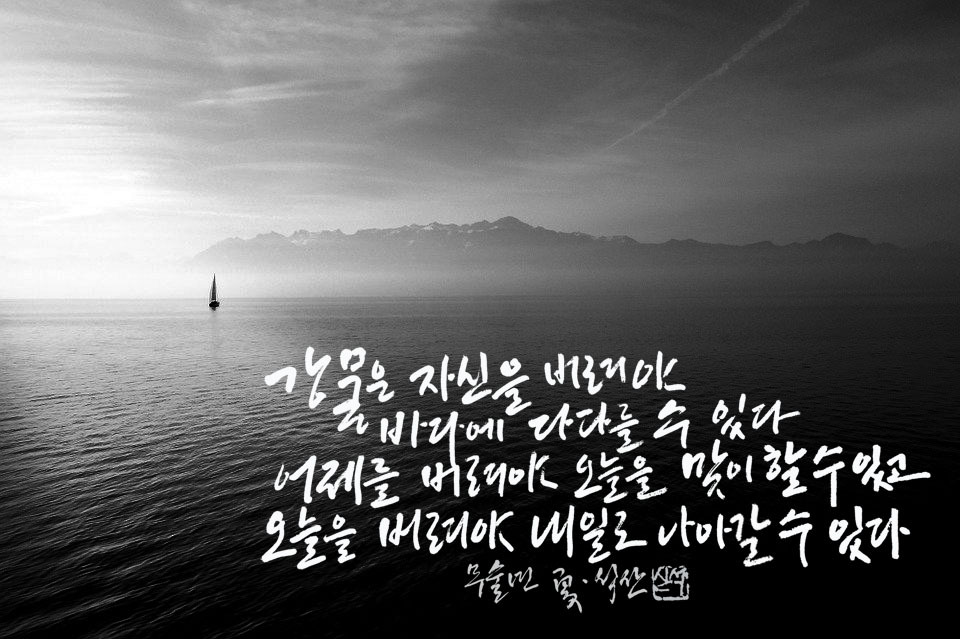 강물은 자신을 버려야
바다에 다다를 수 있다
어제를 버려야 오늘을 맞이 할 수 있고
오늘을 버려야 내일로 나아갈 수 있다
무술년 · 석산